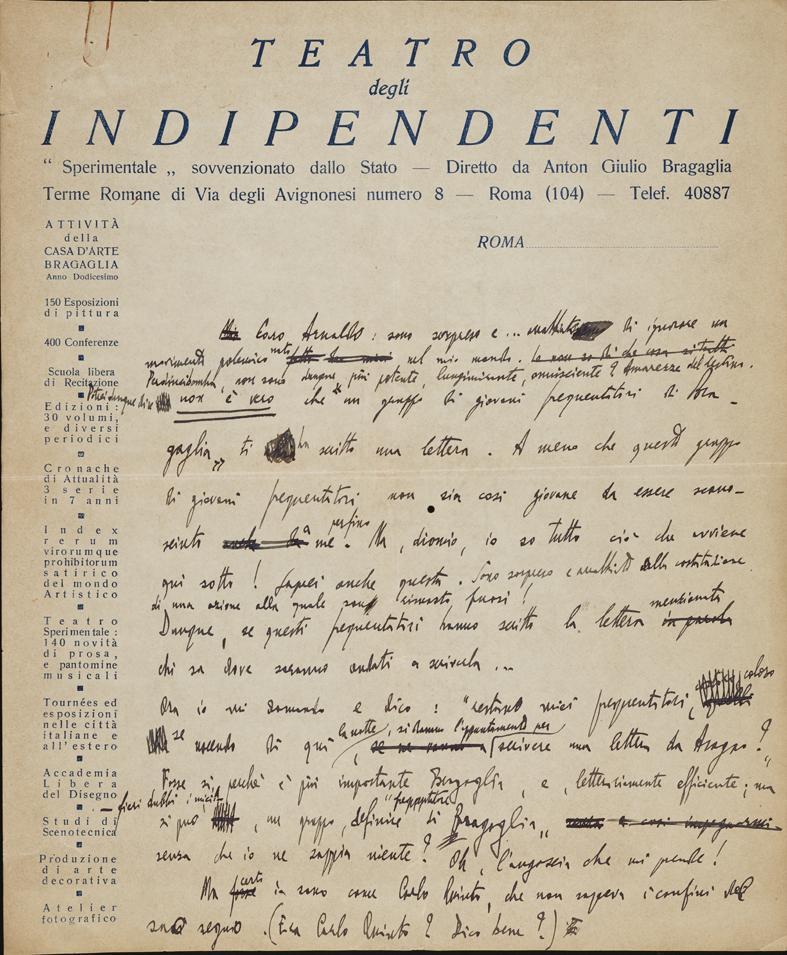 TEATRO
degli
INDIPENDENTI
“ Sperimentale „ sovvenzionato dallo Stato — Diretto da Anton Giulio Bragaglia
Terme Romane di Via degli Avignonesi numero 8 — Roma (104) — Telef. 40887
ROMA
ATTIVITÀ
della
CASA D'ARTE
BRAGAGLIA
Anno Dodicesimo
150 Esposizioni
di pittura
400 Conferenze
Scuola libera
di Recitazione
Edizioni:
30 volumi,
e diversi
periodici
Cronache
di Attualità
3 serie
in 7 anni
Index
rerum
virorumque
prohibitorum
satirico
del mondo
Artistico
Teatro
Sperimentale:
140 novità
di prosa,
e pantomine
musicali
Tournées ed
esposizioni
nelle città
italiane e
all'estero
Accademia
Libera
del Disegno
Studi di
Scenotecnica
Produzione
di arte
decorativa
Atelier
fotografico
Caro Arnaldo: sono sorpreso e ... di ignorare un
movimento polemico nato nel mio mondo. Io non so di che cosa si tratti
non sono dunque, più potente, lungimirante, onnisciente? Amarezze del destino.
Potrei dunque dire non è vero che “un gruppo di giovani frequentatori di Bra-
gaglia„ ti ha scritto una lettera. A meno che questo gruppo
di giovani frequentatori non sia così giovane da essere scono-
sciuto a me perfino. Ma, dionoio, io so tutto ciò che avviene
qui sotto! Saprei anche questa. Sono sorpreso e alla costituzione
di una azione alla quale sono rimasto fuori!
Dunque, se questi frequentatori hanno scritto la lettera menzionata
chi sa dove saranno andati a scriverla ...
Ora io mi domando e dico: “esistono miei frequentatori, coloro
se uscendo di qui la notte, si danno l'appuntamento per scrivere una lettera da Aragno?”
Forse si, perchè è più importante Bragaglia, e, letterariamente efficiente; ma
— fieri dubbi i miei — si può, un gruppo, definire “frequentatori di Bragaglia„
senza che io ne sappia niente? Oh, l'angoscia che mi prende!
Ma certo io sono come Carlo Quinto, che non sapeva i confini del
suo regno. (Era Carlo Quinto? Dico bene?)